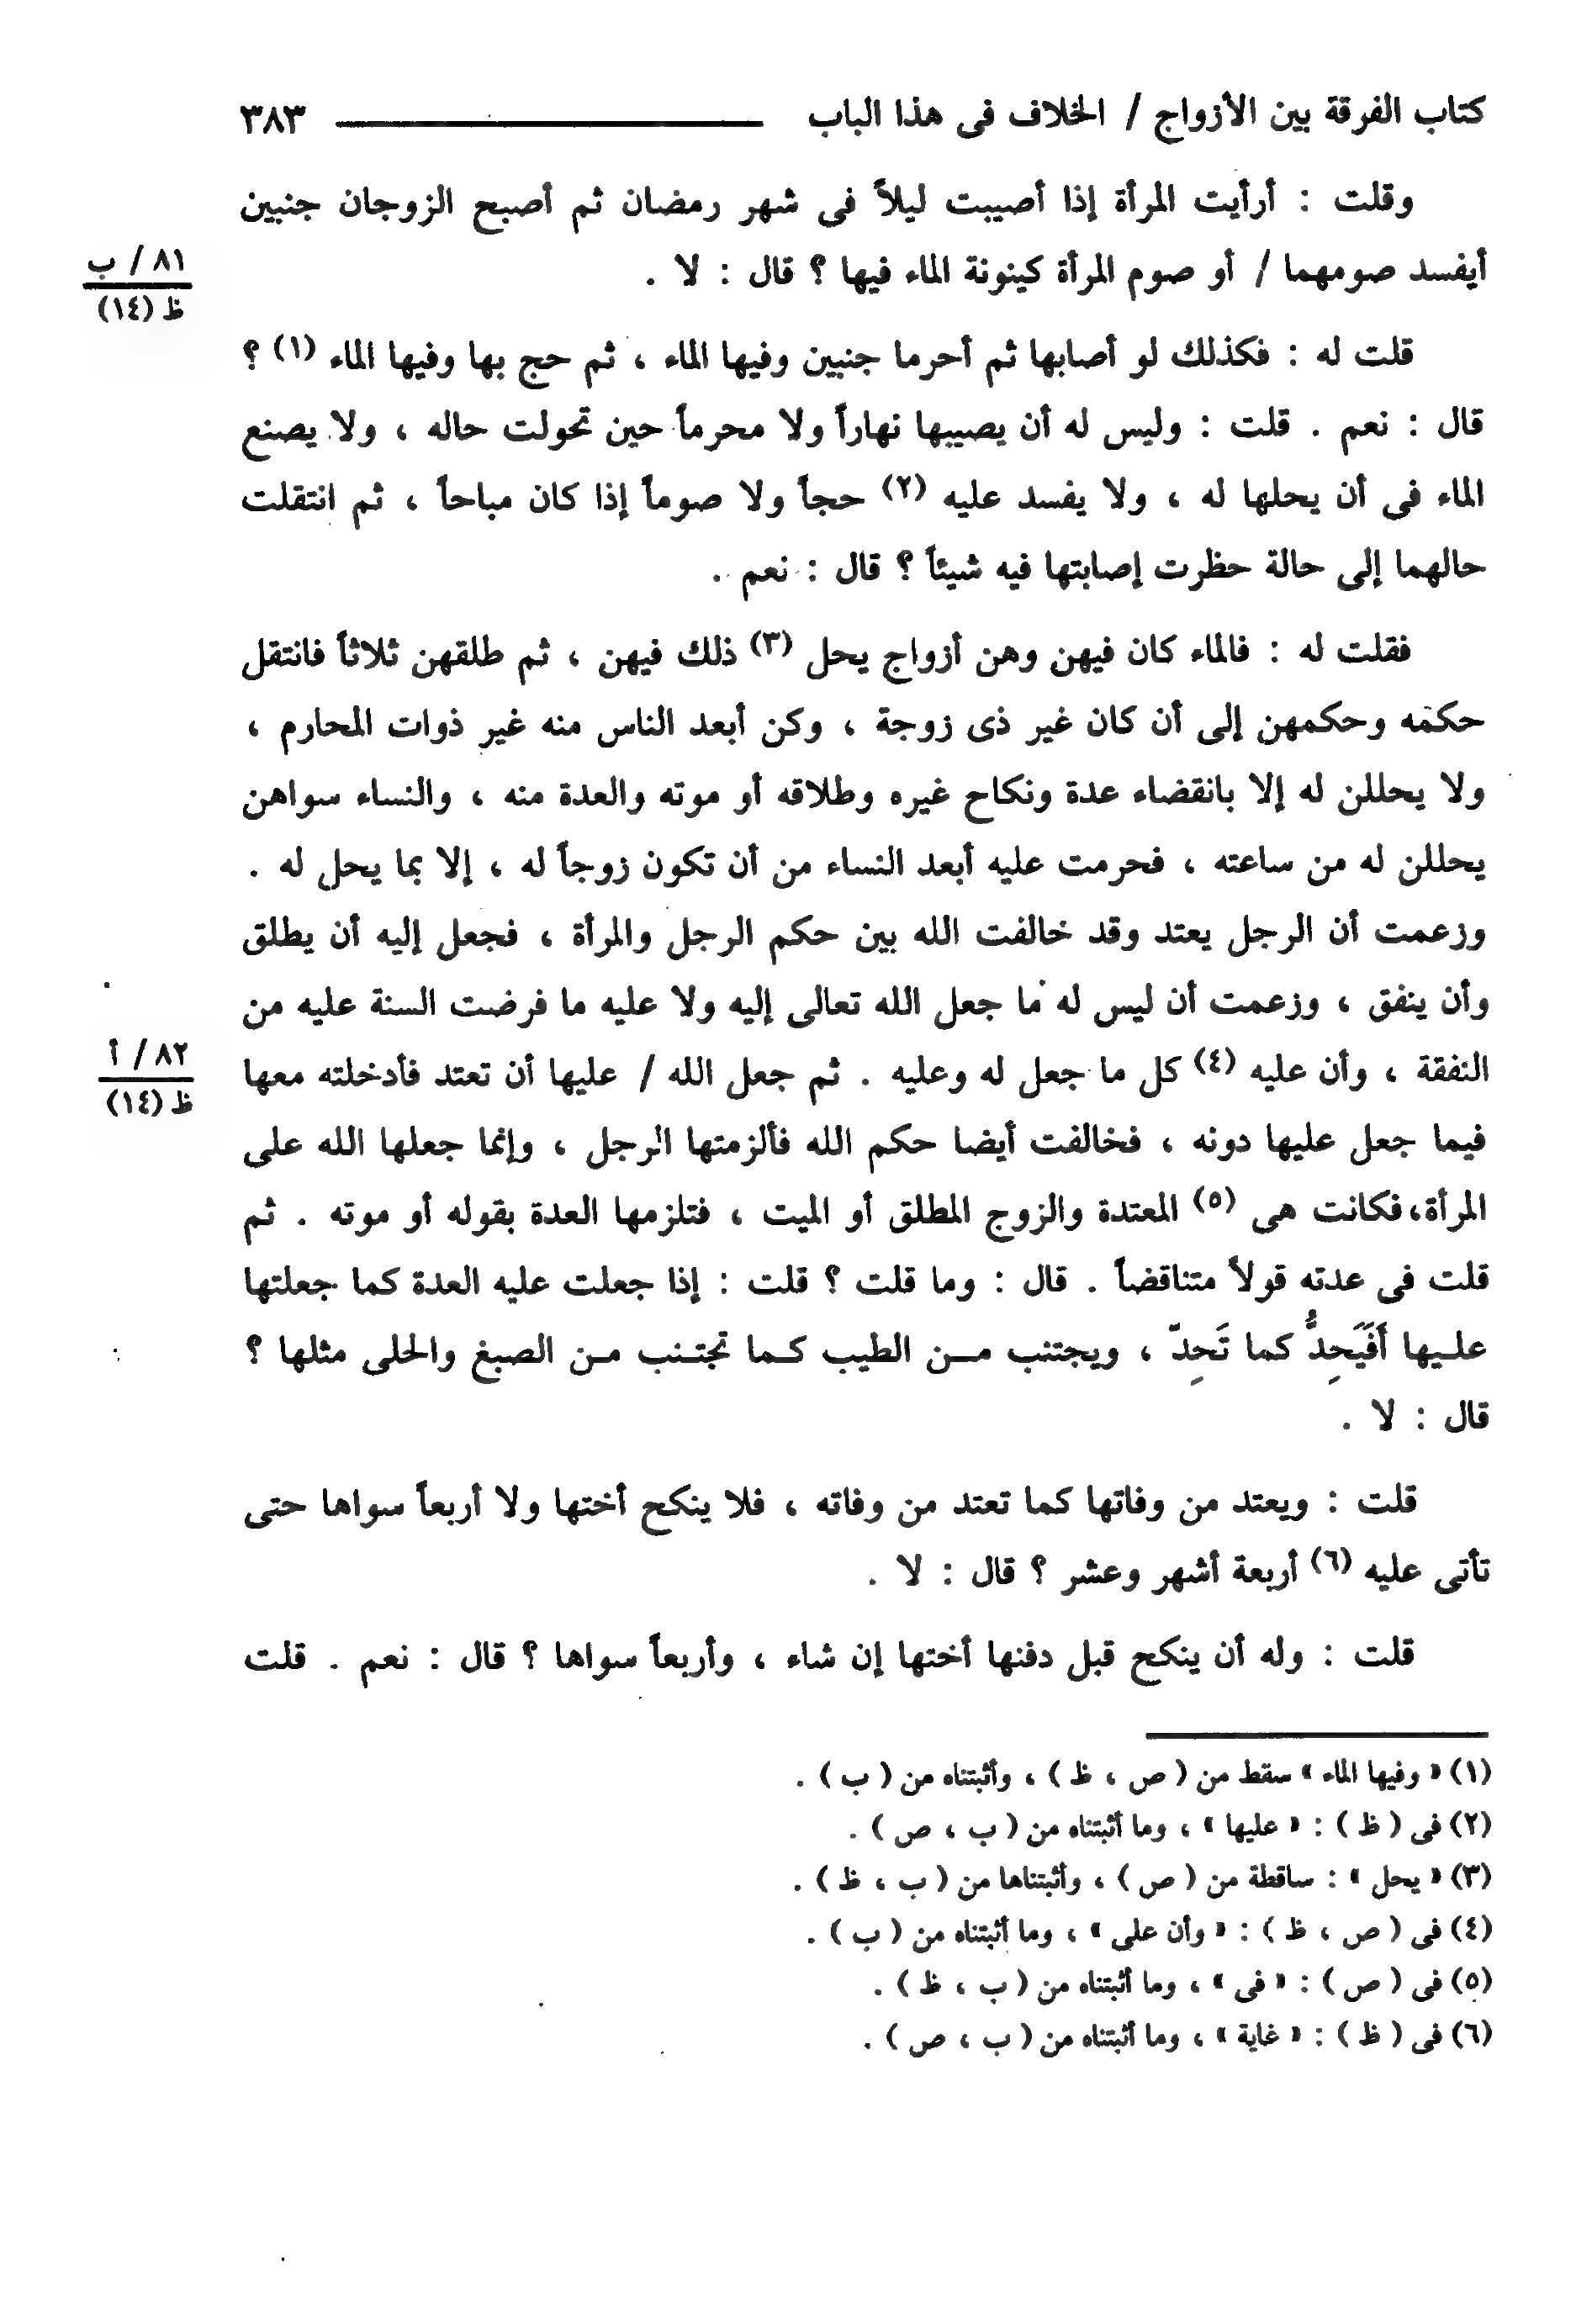 كتاب الفرقة بين الأزواج / الخلاف فى هذا الباب ــــــــــــ ٣٨٣
وقلت : أرأيت المرأة إذا أصيبت ليلاً فى شهر رمضان ثم أصبح الزوجان جنبين
أيفسد صومهما / أو صوم المرأة كينونة الماء فيها ؟ قال : لا .
٨١ / ب
ظ (١٤)
قلت له : فكذلك لو أصابها ثم أحرما جنبين وفيها الماء ، ثم حج بها وفيها الماء (١) ؟
قال : نعم . قلت : وليس له أن يصيبها نهاراً ولا محرماً حين تحولت حاله ، ولا يصنع
الماء فى أن يحلها له ، ولا يفسد عليه (٢) حجاً ولا صوماً إذا كان مباحاً ، ثم انتقلت
حالهما إلى حالة حظرت إصابتها فيه شيئاً ؟ قال : نعم .
فقلت له : فالماء كان فيهن وهن أزواج يحل (٣) ذلك فيهن ، ثم طلقهن ثلاثاً فانتقل
حكمه وحكمهن إلى أن كان غير ذى زوجة ، وكن أبعد الناس منه غير ذوات المحارم ،
ولا يحللن له إلا بانقضاء عدة ونكاح غيره وطلاقه أو موته والعدة منه ، والنساء سواهن
يحللن له من ساعته ، فحرمت عليه أبعد النساء من أن تكون زوجاً له ، إلا بما يحل له .
وزعمت أن الرجل يعتد وقد خالفت الله بين حكم الرجل والمرأة ، فجعل إليه أن يطلق
وأن ينفق ، وزعمت أن ليس له ما جعل الله تعالى إليه ولا عليه ما فرضت السنة عليه من
النفقة ، وأن عليه (٤) كل ما جعل له وعليه . ثم جعل الله / عليها أن تعتد فأدخلته معها
٨٢ / أ
ظ (١٤)
فيما جعل عليها دونه ، فخالفت أيضا حكم الله فألزمتها الرجل ، وإنما جعلها الله على
المرأة،فكانت هى (٥) المعتدة والزوج المطلق أو الميت ، فتلزمها العدة بقوله أو موته . ثم
قلت فى عدته قولاً متناقضاً . قال : وما قلت ؟ قلت : إذا جعلت عليه العدة كما جعلتها
عليها أَفَيَحِدُّ كما تَحِدّ ، ويجتنب من الطيب كما تجتنب من الصبغ والحلى مثلها ؟
قال : لا .
قلت : ويعتد من وفاتها كما تعتد من وفاته ، فلا ينكح أختها ولا أربعاً سواها حتى
تأتى عليه (٦) أربعة أشهر وعشر ؟ قال : لا .
قلت : وله أن ينكح قبل دفنها أختها إن شاء ، وأربعاً سواها ؟ قال : نعم . قلت
(١) « وفيها الماء » سقط من ( ص ، ظ ) ، وأثبتناه من ( ب ) .
(٢) فى ( ظ ) : « عليها » ، وما أثبتناه من ( ب ، ص ) .
(٣) « يحل » : ساقطة من ( ص ) ، وأثبتناها من ( ب ، ظ ) .
(٤) فى ( ص ، ظ ) : « وأن على » ، وما أثبتناه من ( ب ) .
(٥) فى ( ص ) : « فى » ، وما أثبتناه من ( ب ، ظ ) .
(٦) فى ( ظ ) : « غاية » ، وما أثبتناه من ( ب ، ص ) .